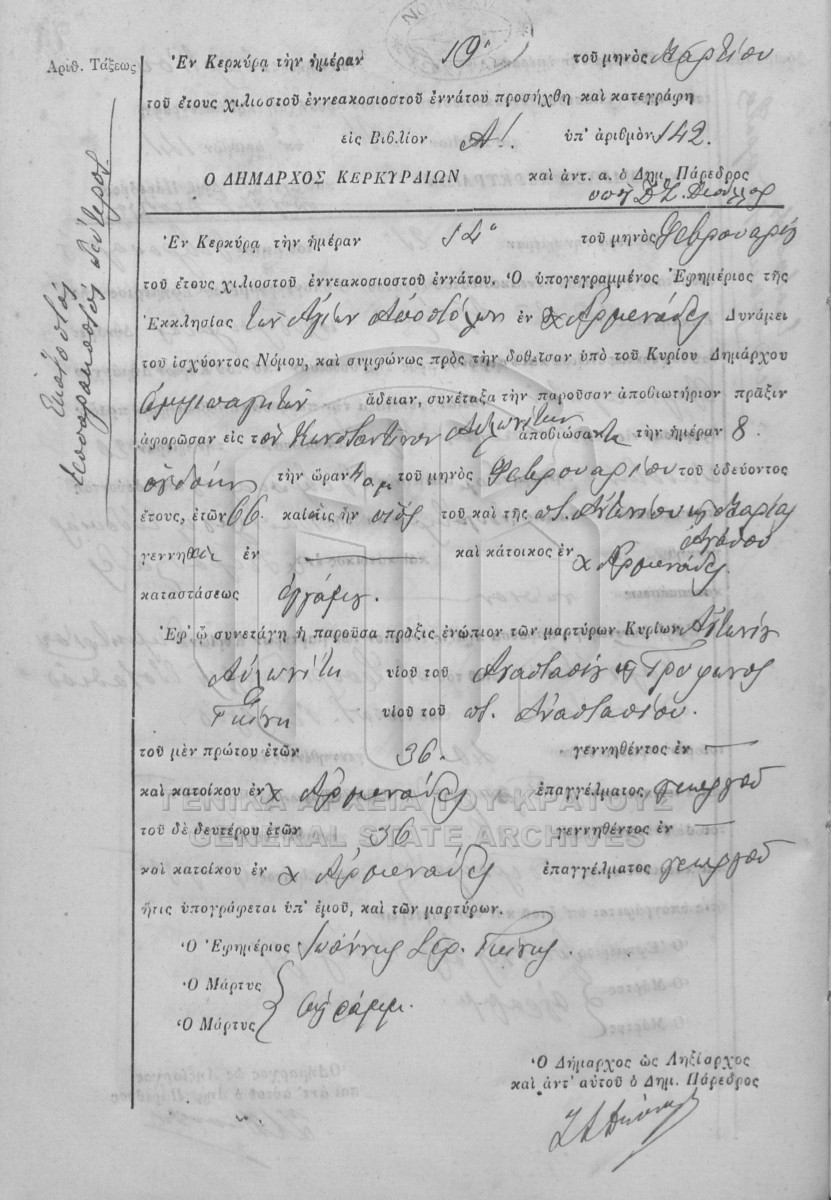 Ἀριθ. Τάξεως
Ἑκατοστός
τεσσαρακοστός δεύτερος
Ἐν Κερκύρᾳ τὴν ἡμέραν 19η τοῦ μηνὸς Μαρτίου
τοῦ ἔτους χιλιοστοῦ ἐννεακοσιοστοῦ ἐννάτου προσήχθη καὶ κατεγράφη
εἰς Βιβλίον Α! ὑπ' ἀριθμὸν 142.
Ο ΔΗΜΑΡΧΟΣ ΚΕΡΚΥΡΑΙΩΝ καὶ ἀντ. α. ὁ Δημ. Πάρεδρος
Ἐν Κερκύρᾳ τὴν ἡμέραν 14η τοῦ μηνὸς Φεβρουαρίου
τοῦ ἔτους χιλιοστοῦ ἐννεακοσιοστοῦ ἐννάτου. Ὁ ὑπογεγραμμένος Ἐφημέριος τῆς
Ἐκκλησίας τῶν Ἁγίων Ἀποστόλων ἐν χ Ἀρμενάδες Δυνάμει
τοῦ ἰσχύοντος Νόμου, καὶ συμφώνως πρὸς τὴν δοθεῖσαν ὑπὸ τοῦ Κυρίου Δημάρχου
ἄδειαν, συνέταξα τὴν παροῦσαν ἀποβιωτήριον πρᾶξιν
ἀφορῶσαν εἰς τὸν Κωνσταντῖνον Αὐλωνίτην ἀποβιώσαντα τὴν ἡμέραν 8
ὀγδόην τὴν ὥραν 4 π.μ. τοῦ μηνὸς Φεβρουαρίου τοῦ ὁδεύοντος
ἔτους, ἐτῶν 66. καὶ εἰς ἣν υἱὸς τοῦ καὶ τῆς ποτ. Ἀντωνίου κ Μαρίας
γεννηθεὶς ἐν — καὶ κάτοικος ἐν χ Ἀρμενάδες.
καταστάσεως ἐγγάμου.
Ἐφ' ᾧ συνετάγη ἡ παροῦσα πρᾶξις ἐνώπιον τῶν μαρτύρων Κυρίων Ἀντωνίου
Αὐλωνίτη υἱοῦ τοῦ Ἀναστασίου κ Τρύφωνος
Γκίνη υἱοῦ τοῦ ποτ. Ἀναστασίου.
τοῦ μὲν πρώτου ἐτῶν 36. γεννηθέντος ἐν —
καὶ κατοίκου ἐν χ Ἀρμενάδες ἐπαγγέλματος γεωργοῦ
τοῦ δὲ δευτέρου ἐτῶν 36 γεννηθέντος ἐν —
καὶ κατοίκου ἐν χ Ἀρμενάδες ἐπαγγέλματος γεωργοῦ
ἥτις ὑπογράφεται ὑπ' ἐμοῦ, καὶ τῶν μαρτύρων.
Ὁ Ἐφημέριος Ἰωάννης Σπ. Γκίνης.
Ὁ Μάρτυς
ἀγράμμ.
Ὁ Μάρτυς
Ὁ Δήμαρχος ὡς Ληξίαρχος
καὶ ἀντ' αὐτοῦ ὁ Δημ. Πάρεδρος
ΓΕΝΙΚΑ ΑΡΧΕΙΑ ΤΟΥ ΚΡΑΤΟΥΣ
GENERAL STATE ARCHIVES